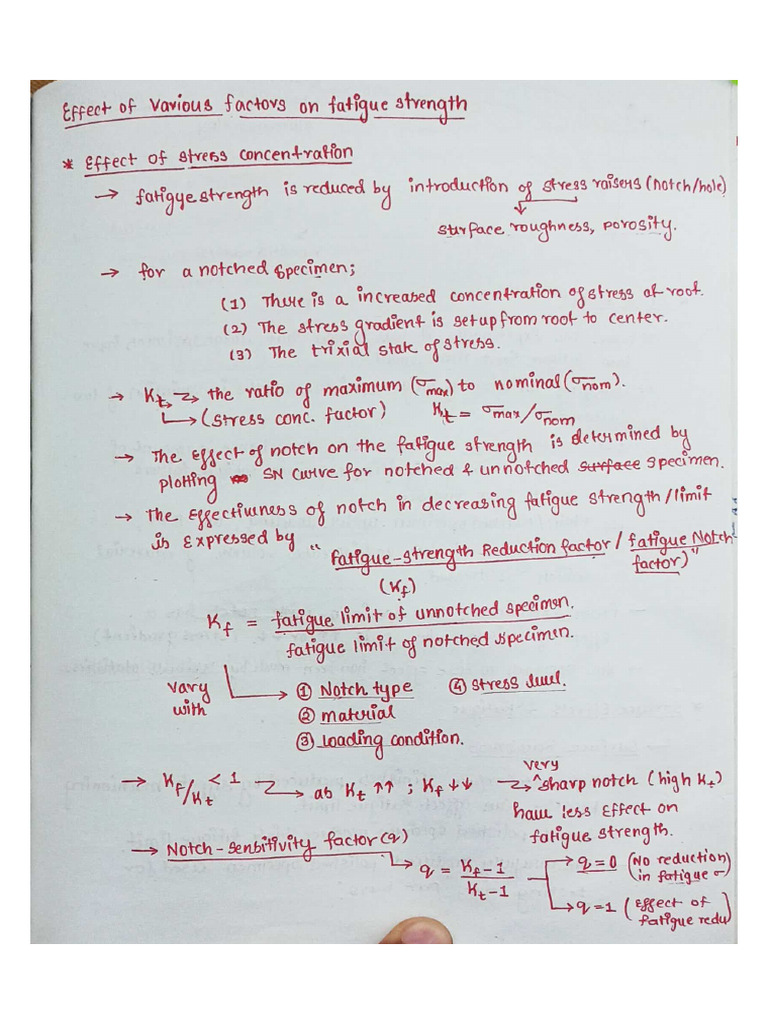 Effect of various factors on fatigue strength
* Effect of stress concentration
→ fatigye strength is reduced by introduction of stress raisers (notch/hole)
surface roughness, porosity.
→ for a notched specimen;
(1) There is a increased concentration of stress at root.
(2) The stress gradient is setup from root to center.
(3) The trixial state of stress.
→ Kt → the ratio of maximum (σmax) to nominal (σnom).
→ (stress conc. factor) Kt = σmax/σnom
→ The effect of notch on the fatigue strength is determined by
plotting SN curve for notched & unnotched surface specimen.
→ The effectiveness of notch in decreasing fatigue strength/limit
is expressed by " fatigue-strength Reduction factor / fatigue Notch
factor)"
(Kf)
Kf = fatigue limit of unnotched specimen.
fatigue limit of notched specimen.
vary with → ① Notch type ④ stress level.
② material
③ Loading condition.
→ Kf/Kt < 1 → as Kt ↑↑ ; Kf ↓↓ → very sharp notch (high Kt)
have less effect on
fatigue strength.
→ Notch-sensitivity factor (q)
→ q = Kf-1 / Kt-1 → q = 0 (No reduction
in fatigue σ)
→ q = 1 (Effect of
fatigue redu